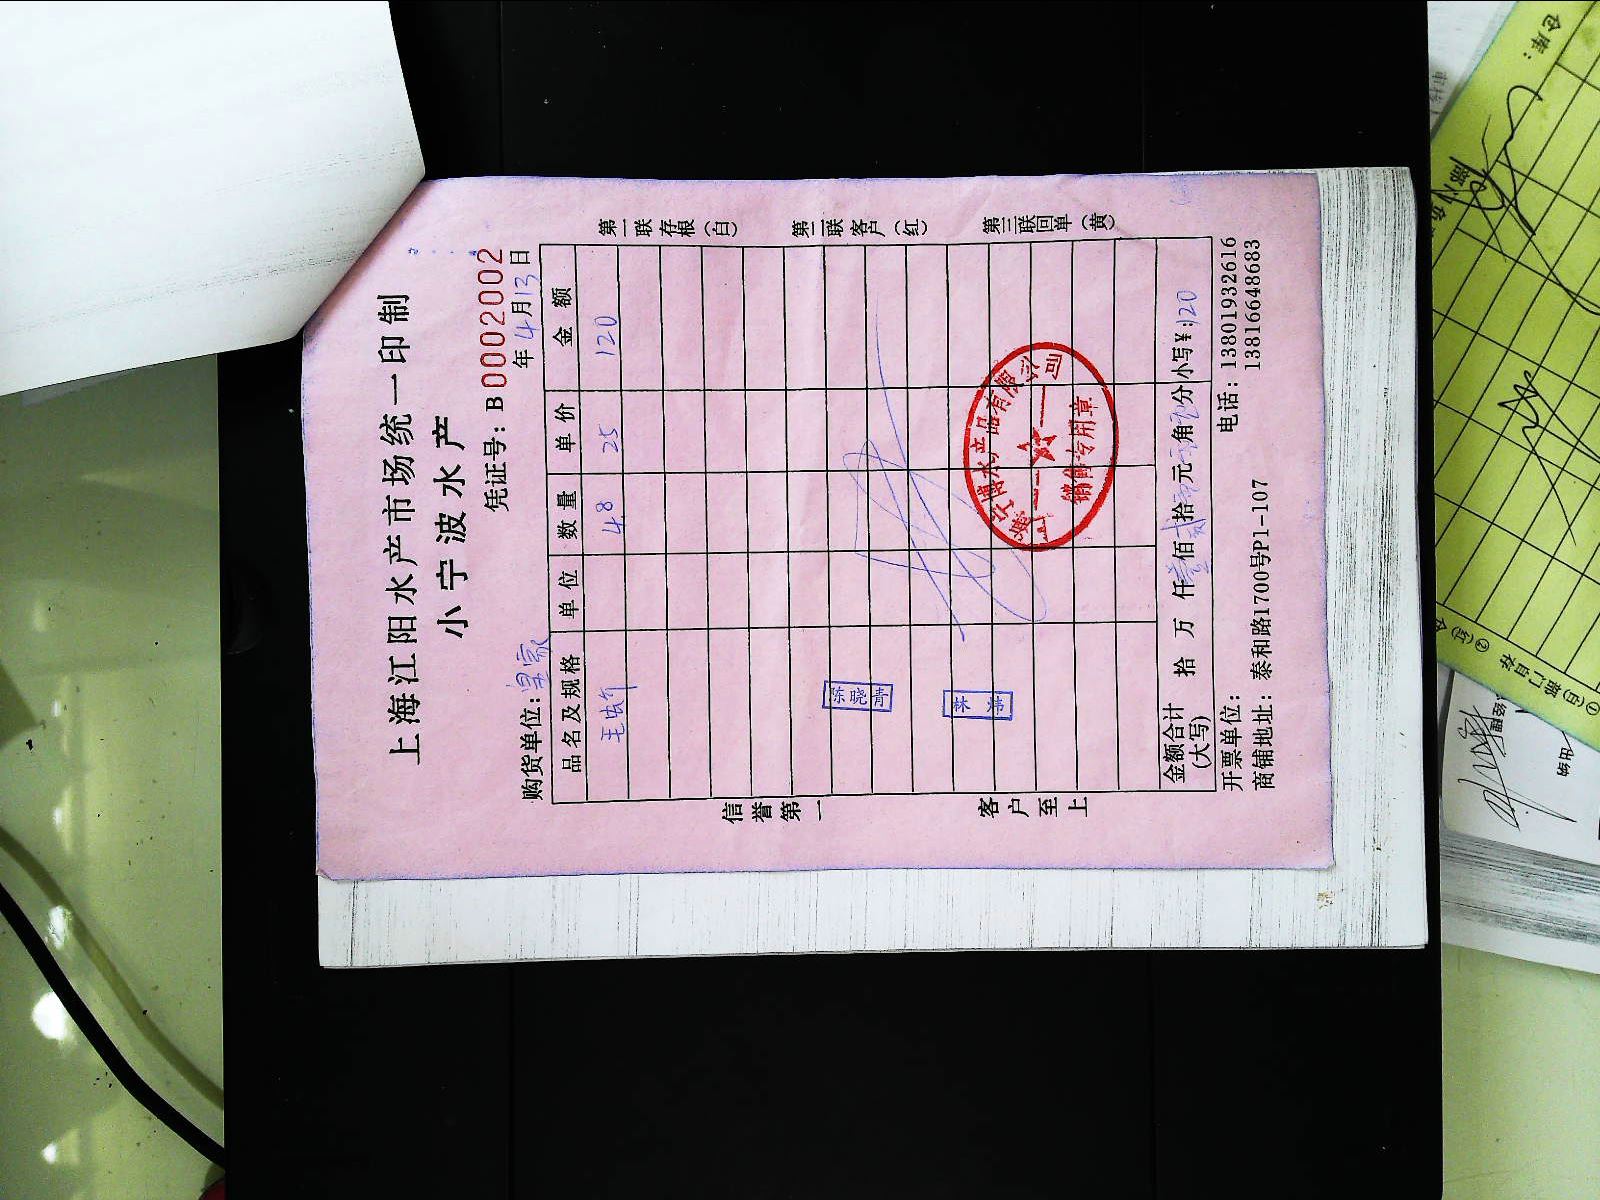 上海江阳水产市场统一印制
小宁波水产
凭证号：B0002002
购货单位：皇家 年4月13日
品名及规格 单位 数量 单价 金额
毛蚶 4.8 25 120
第一联存根（白）
第二联客户（红）
第三联回单（黄）
信誉第一
客户至上
陈晓青
林
水产品有限公司
销售专用章
金额合计（大写） 拾 万 仟壹佰贰拾元角分 小写￥:120
开票单位： 电话：13801932616
商铺地址：泰和路1700号P1-107 13816648683
仓库：
部门
①（白）部门自存
②（红）仓
出纳
经理